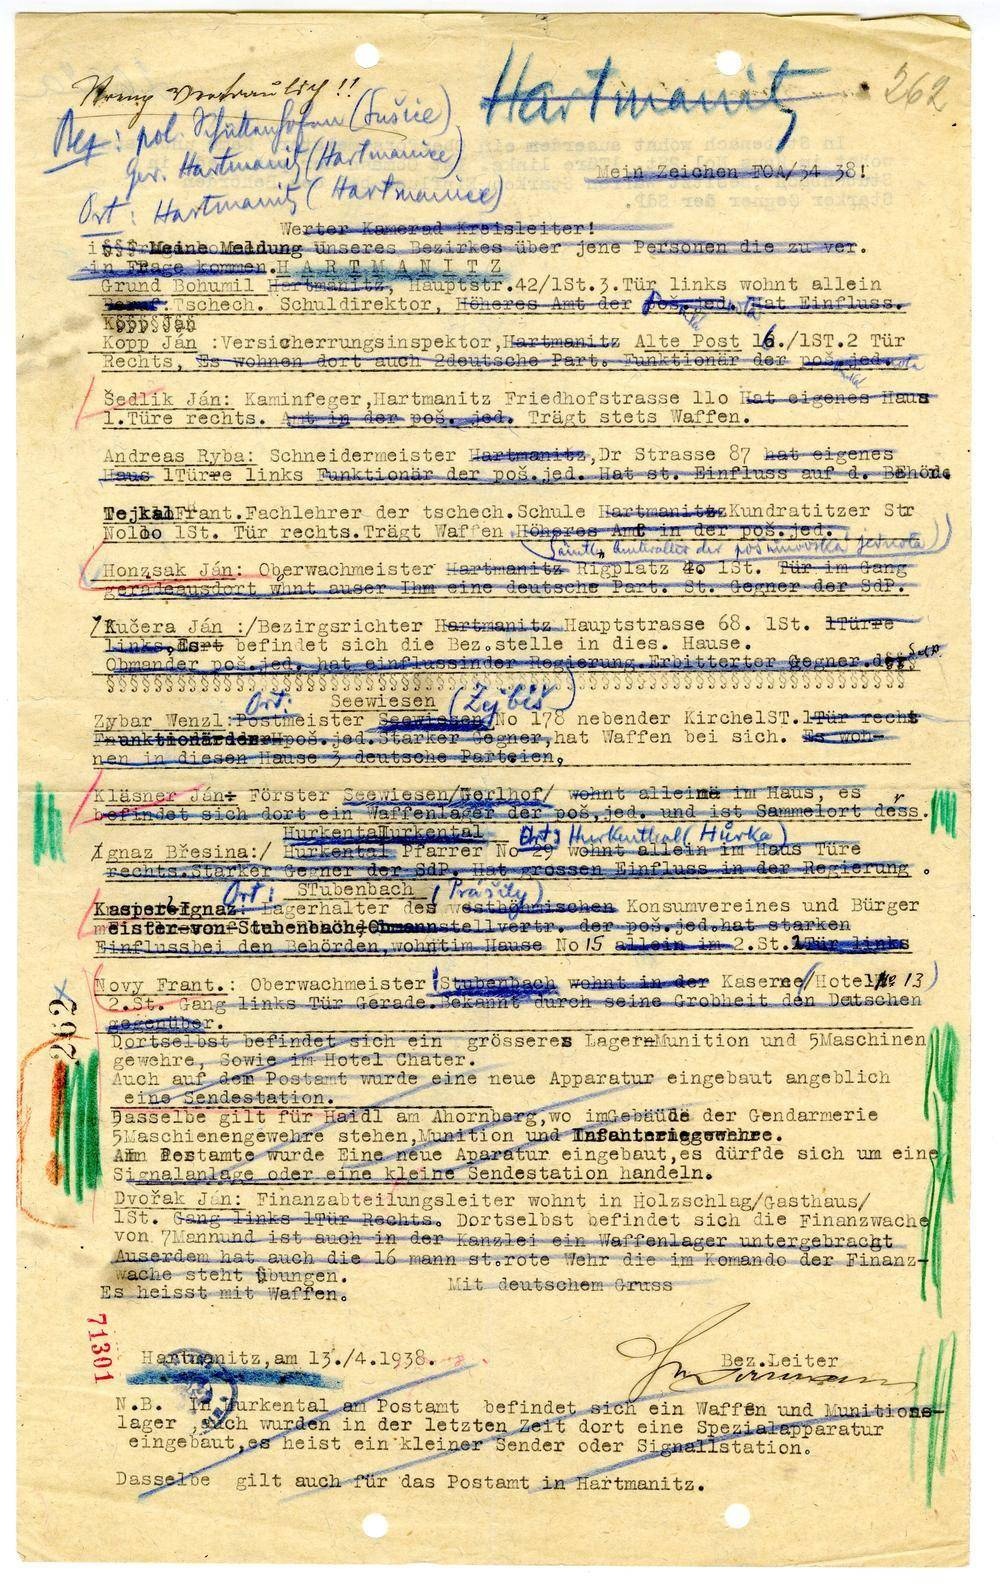 Streng Vertraulich!!
Hartmanitz
262
Bez: pol. Schüttenhofen (Sušice)
Ger. Hartmanitz (Hartmanice)
Ort: Hartmanitz (Hartmanice)
Mein Zeichen FOA/34 38!
Werter Kamerad Kreisleiter!
Meine Meldung unseres Bezirkes über jene Personen die zu ver.
in Frage kommen. H A R T M A N I T Z
Grund Bohumil Hartmanitz, Hauptstr.42/1St.3.Tür links wohnt allein
Beruf:Tschech. Schuldirektor, Höheres Amt der Poš. jed. Hat Einfluss.
Kopp Ján
Kopp Ján :Versicherrungsinspektor,Hartmanitz Alte Post 16./1ST.2 Tür
Rechts, Es wohnen dort auch 2deutsche Part. Funktionär der poš.jed.
Šedlik Ján: Kaminfeger,Hartmanitz Friedhofstrasse 11o Hat eigenes Haus
1.Türe rechts. Amt in der poš. jed. Trägt stets Waffen.
Andreas Ryba: Schneidermeister Hartmanitz,Dr Strasse 87 hat eigenes
Haus 1Türre links Funktionär der poš.jed. Hat st. Einfluss auf d. Behörde
Tejkal Frant.Fachlehrer der tschech.Schule Hartmanitz Kundratitzer Str
1St. Tür rechts.Trägt Waffen Höheres Amt in der poš.jed.
(Sämtl. Amtwalter der pošumovska jednota)
Honzsak Ján: Oberwachmeister Hartmanitz Rigplatz 4o 1St. Tür im Gang
geradeausdort whnt auser Ihm eine deutsche Part. St. Gegner der SdP.
Kučera Ján :/Bezirgsrichter Hartmanitz Hauptstrasse 68. 1St. 1Türre
Links, befindet sich die Bez.stelle in dies. Hause.
Obmander poš.jed. hat einflussinder Regierung.Erbitterter Gegner.der SdP.
§§§§§§§§§§§§§§§§§§§§§§§§§§§§§§§§§§§§§§§§§§§§§§§§§§§§§§§§§§§§§§§§
Ort: Seewiesen (Zejbiš)
Zybar Wenzl:Postmeister Seewiesen No 178 nebender Kirche1ST.1Tür recht
poš.jed.Starker Gegner,hat Waffen bei sich. Es woh-
nen in diesen Hause 3 deutsche Parteien,
Kläsner Ján: Förster Seewiesen/Gerlhof/ wohnt alleine im Haus, es
befindet sich dort ein Waffenlager der poš.jed. und ist Sammelort dess.
Hurkental Ort: Hurkenthal (Hůrka)
Ignaz Břesina:/ Hurkental Pfarrer No 29 wohnt allein im Haus Türe
rechts.Starker Gegner der SdP. Hat grossen Einfluss in der Regierung .
Ort: STubenbach (Prášily)
Kasperer Ignaz: Lagerhalter des westböhmischen Konsumvereines und Bürger
meister von Stubenbach,Obmannstellvertr. der poš.jed.hat starken
Einflussbei den Behörden,wohntim Hause No 15 allein im 2.St.1Tür links
Novy Frant.: Oberwachmeister Stubenbach wohnt in der Kaserne/Hotel/ No 13)
2.St. Gang links Tür Gerade.Bekannt durch seine Grobheit den Deutschen
gegenüber.
262
Dortselbst befindet sich ein grösseres Lager Munition und 5Maschinen
gewehre, Sowie im Hotel Chater.
Auch auf dem Postamt wurde eine neue Apparatur eingebaut angeblich
eine Sendestation.
Dasselbe gilt für Haidl am Ahornberg,wo imGebäude der Gendarmerie
5Maschienengewehre stehen,Munition und Infanteriegewehre.
Am Postamte wurde Eine neue Aparatur eingebaut,es dürfde sich um eine
Signalanlage oder eine kleine Sendestation handeln.
Dvořak Ján: Finanzabteilungsleiter wohnt in Holzschlag/Gasthaus/
1St. Gang links 1Tür Rechts. Dortselbst befindet sich die Finanzwache
von 7Mannund ist auch in der Kanzlei ein Waffenlager untergebracht
Auserdem hat auch die 16 mann st.rote Wehr die im Komando der Finanz-
wache steht Übungen.
Es heisst mit Waffen.
Mit deutschem Gruss
71301
Hartmanitz,am 13./4.1938.
Bez.Leiter
N.B. In Hurkental am Postamt befindet sich ein Waffen und Munitions-
lager ,auch wurden in der letzten Zeit dort eine Spezialapparatur
eingebaut,es heist ein kleiner Sender oder Signallstation.
Dasselbe gilt auch für das Postamt in Hartmanitz.